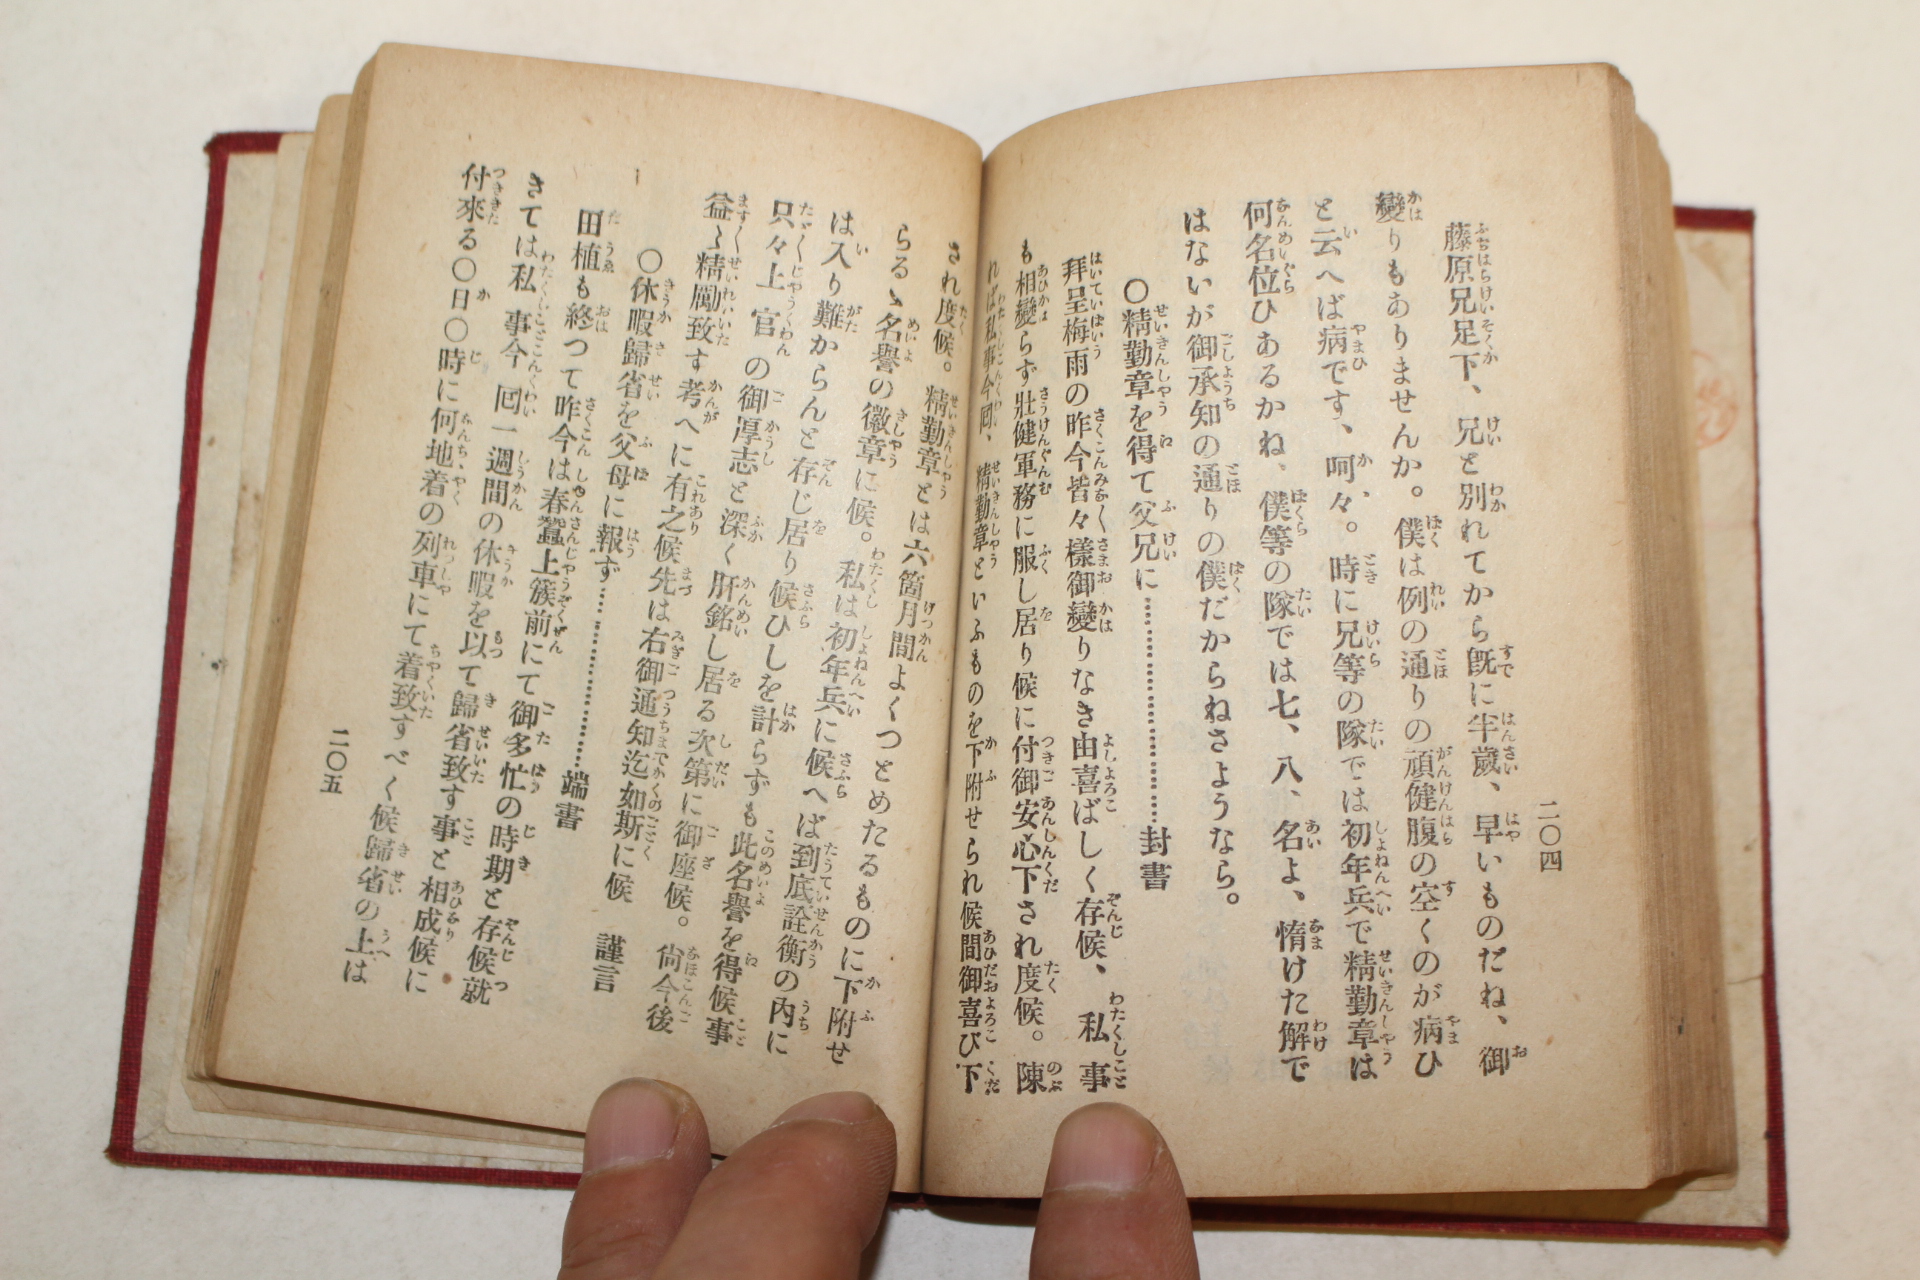 二〇四
藤原兄足下、兄と別れてから既に半歲、早いものだね、御
變りもありませんか。僕は例の通りの頑健腹の空くのが病ひ
と云へば病です、呵々。時に兄等の隊では初年兵で精勤章は
何名位ひあるかね、僕等の隊では七、八、名よ、惰けた解で
はないが御承知の通りの僕だからねさようなら。
〇精勤章を得て父兄に……………………封書
拜呈梅雨の昨今皆々樣御變りなき由喜ばしく存候、私事
も相變らず壯健軍務に服し居り候に付御安心下され度候。陳
れば私事今囘、精勤章といふものを下附せられ候間御喜び下
され度候。精勤章とは六箇月間よくつとめたるものに下附せ
らるゝ名譽の徽章に候。私は初年兵に候へば到底詮衡の內に
は入り難からんと存じ居り候ひしを計らずも此名譽を得候事
只々上官の御厚志と深く肝銘し居る次第に御座候。尙今後
益〻精勵致す考へに有之候先は右御通知迄如斯に候　謹言
〇休暇歸省を父母に報ず………………端書
田植も終つて昨今は春蠶上簇前にて御多忙の時期と存候就
きては私事今囘一週間の休暇を以て歸省致す事と相成候に
付來る〇日〇時に何地着の列車にて着致すべく候歸省の上は
二〇五